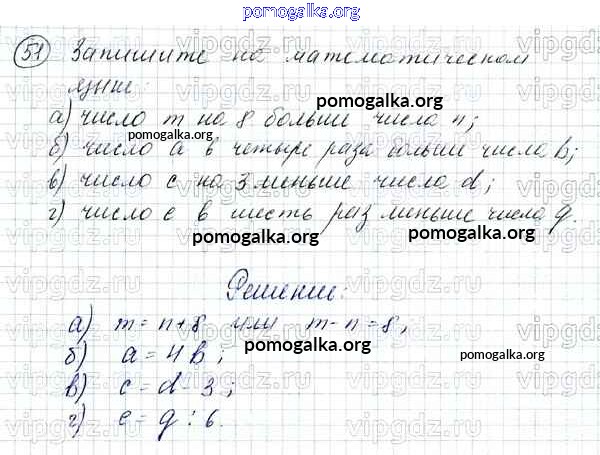 pomogalka.org
51 Запишите на математическом
языке:
а) число m на 8 больше числа n;
б) число a в четыре раза больше числа b;
в) число c на 3 меньше числа d;
г) число e в шесть раз меньше числа q.
Решение:
а) m = n + 8 или m - n = 8;
б) a = 4b;
в) c = d - 3;
г) e = q : 6.
pomogalka.org
pomogalka.org
pomogalka.org
pomogalka.org
pomogalka.org
pomogalka.org
vipgdz.ru